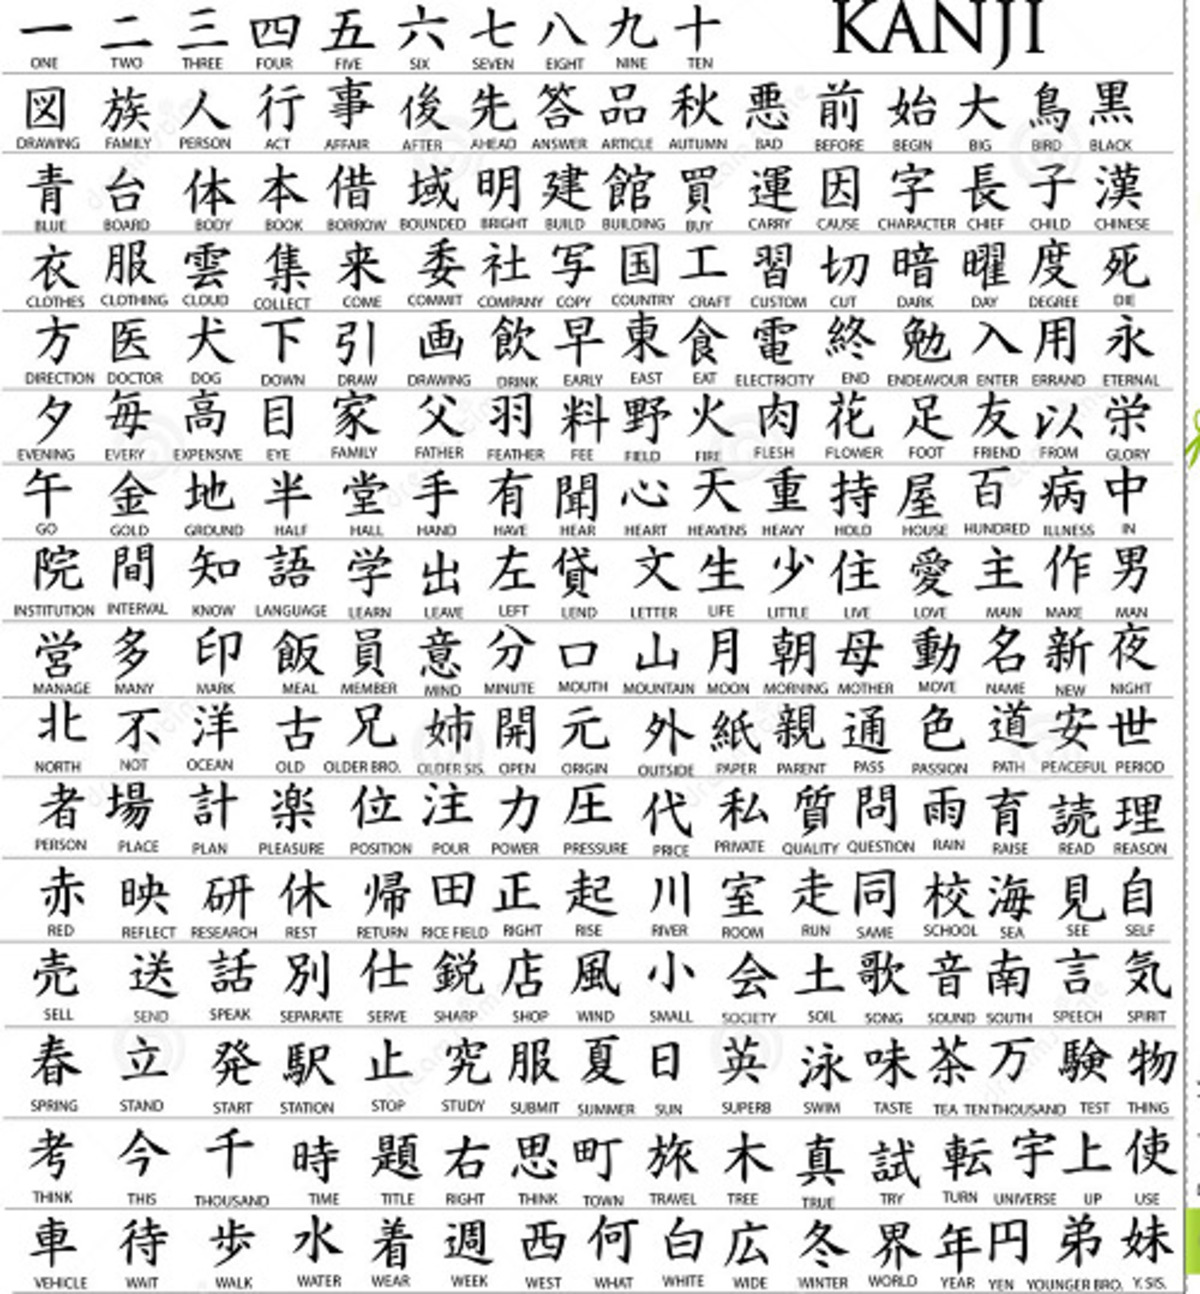 KANJI
一 二 三 四 五 六 七 八 九 十
ONE TWO THREE FOUR FIVE SIX SEVEN EIGHT NINE TEN
図 族 人 行 事 俊 先 答 品 秋 悪 前 始 大 鳥 黒
DRAWING FAMILY PERSON ACT AFFAIR AFTER AHEAD ANSWER ARTICLE AUTUMN BAD BEFORE BEGIN BIG BIRD BLACK
青 台 体 本 借 域 明 建 館 買 運 因 字 長 子 漢
BLUE BOARD BODY BOOK BORROW BOUNDED BRIGHT BUILD BUILDING BUY CARRY CAUSE CHARACTER CHIEF CHILD CHINESE
衣 服 雲 集 来 委 社 写 国 工 習 切 暗 曜 度 死
CLOTHES CLOTHING CLOUD COLLECT COME COMMIT COMPANY COPY COUNTRY CRAFT CUSTOM CUT DARK DAY DEGREE DIE
方 医 犬 下 引 画 飲 早 東 食 電 終 勉 入 用 永
DIRECTION DOCTOR DOG DOWN DRAW DRAWING DRINK EARLY EAST EAT ELECTRICITY END ENDEAVOUR ENTER ERRAND ETERNAL
夕 毎 高 目 家 父 羽 料 野 火 肉 花 足 友 以 栄
EVENING EVERY EXPENSIVE EYE FAMILY FATHER FEATHER FEE FIELD FIRE FLESH FLOWER FOOT FRIEND FROM GLORY
午 金 地 半 堂 手 有 聞 心 天 重 持 屋 百 病 中
GO GOLD GROUND HALF HALL HAND HAVE HEAR HEART HEAVENS HEAVY HOLD HOUSE HUNDRED ILLNESS IN
院 間 知 語 学 出 左 貸 文 生 少 住 愛 主 作 男
INSTITUTION INTERVAL KNOW LANGUAGE LEARN LEAVE LEFT LEND LETTER LIFE LITTLE LIVE LOVE MAIN MAKE MAN
営 多 印 飯 員 意 分 口 山 月 朝 母 動 名 新 夜
MANAGE MANY MARK MEAL MEMBER MIND MINUTE MOUTH MOUNTAIN MOON MORNING MOTHER MOVE NAME NEW NIGHT
北 不 洋 古 兄 姉 開 元 外 紙 親 通 色 道 安 世
NORTH NOT OCEAN OLD OLDER BRO. OLDER SIS. OPEN ORIGIN OUTSIDE PAPER PARENT PASS PASSION PATH PEACEFUL PERIOD
者 場 計 楽 位 注 力 圧 代 私 質 問 雨 育 読 理
PERSON PLACE PLAN PLEASURE POSITION POUR POWER PRESSURE PRICE PRIVATE QUALITY QUESTION RAIN RAISE READ REASON
赤 映 研 休 帰 田 正 起 川 室 走 同 校 海 見 自
RED REFLECT RESEARCH REST RETURN RICE FIELD RIGHT RISE RIVER ROOM RUN SAME SCHOOL SEA SEE SELF
売 送 話 別 仕 鋭 店 風 小 会 土 歌 音 南 言 気
SELL SEND SPEAK SEPARATE SERVE SHARP SHOP WIND SMALL SOCIETY SOIL SONG SOUND SOUTH SPEECH SPIRIT
春 立 発 駅 止 究 服 夏 日 英 泳 味 茶 万 験 物
SPRING STAND START STATION STOP STUDY SUBMIT SUMMER SUN SUPERB SWIM TASTE TEA TEN THOUSAND TEST THING
考 今 千 時 題 右 思 町 旅 木 真 試 転 宇 上 使
THINK THIS THOUSAND TIME TITLE RIGHT THINK TOWN TRAVEL TREE TRUE TRY TURN UNIVERSE UP USE
車 待 歩 水 着 週 西 何 白 広 冬 界 年 円 弟 妹
VEHICLE WAIT WALK WATER WEAR WEEK WEST WHAT WHITE WIDE WINTER WORLD YEAR YEN YOUNGER BRO. Y. SIS.